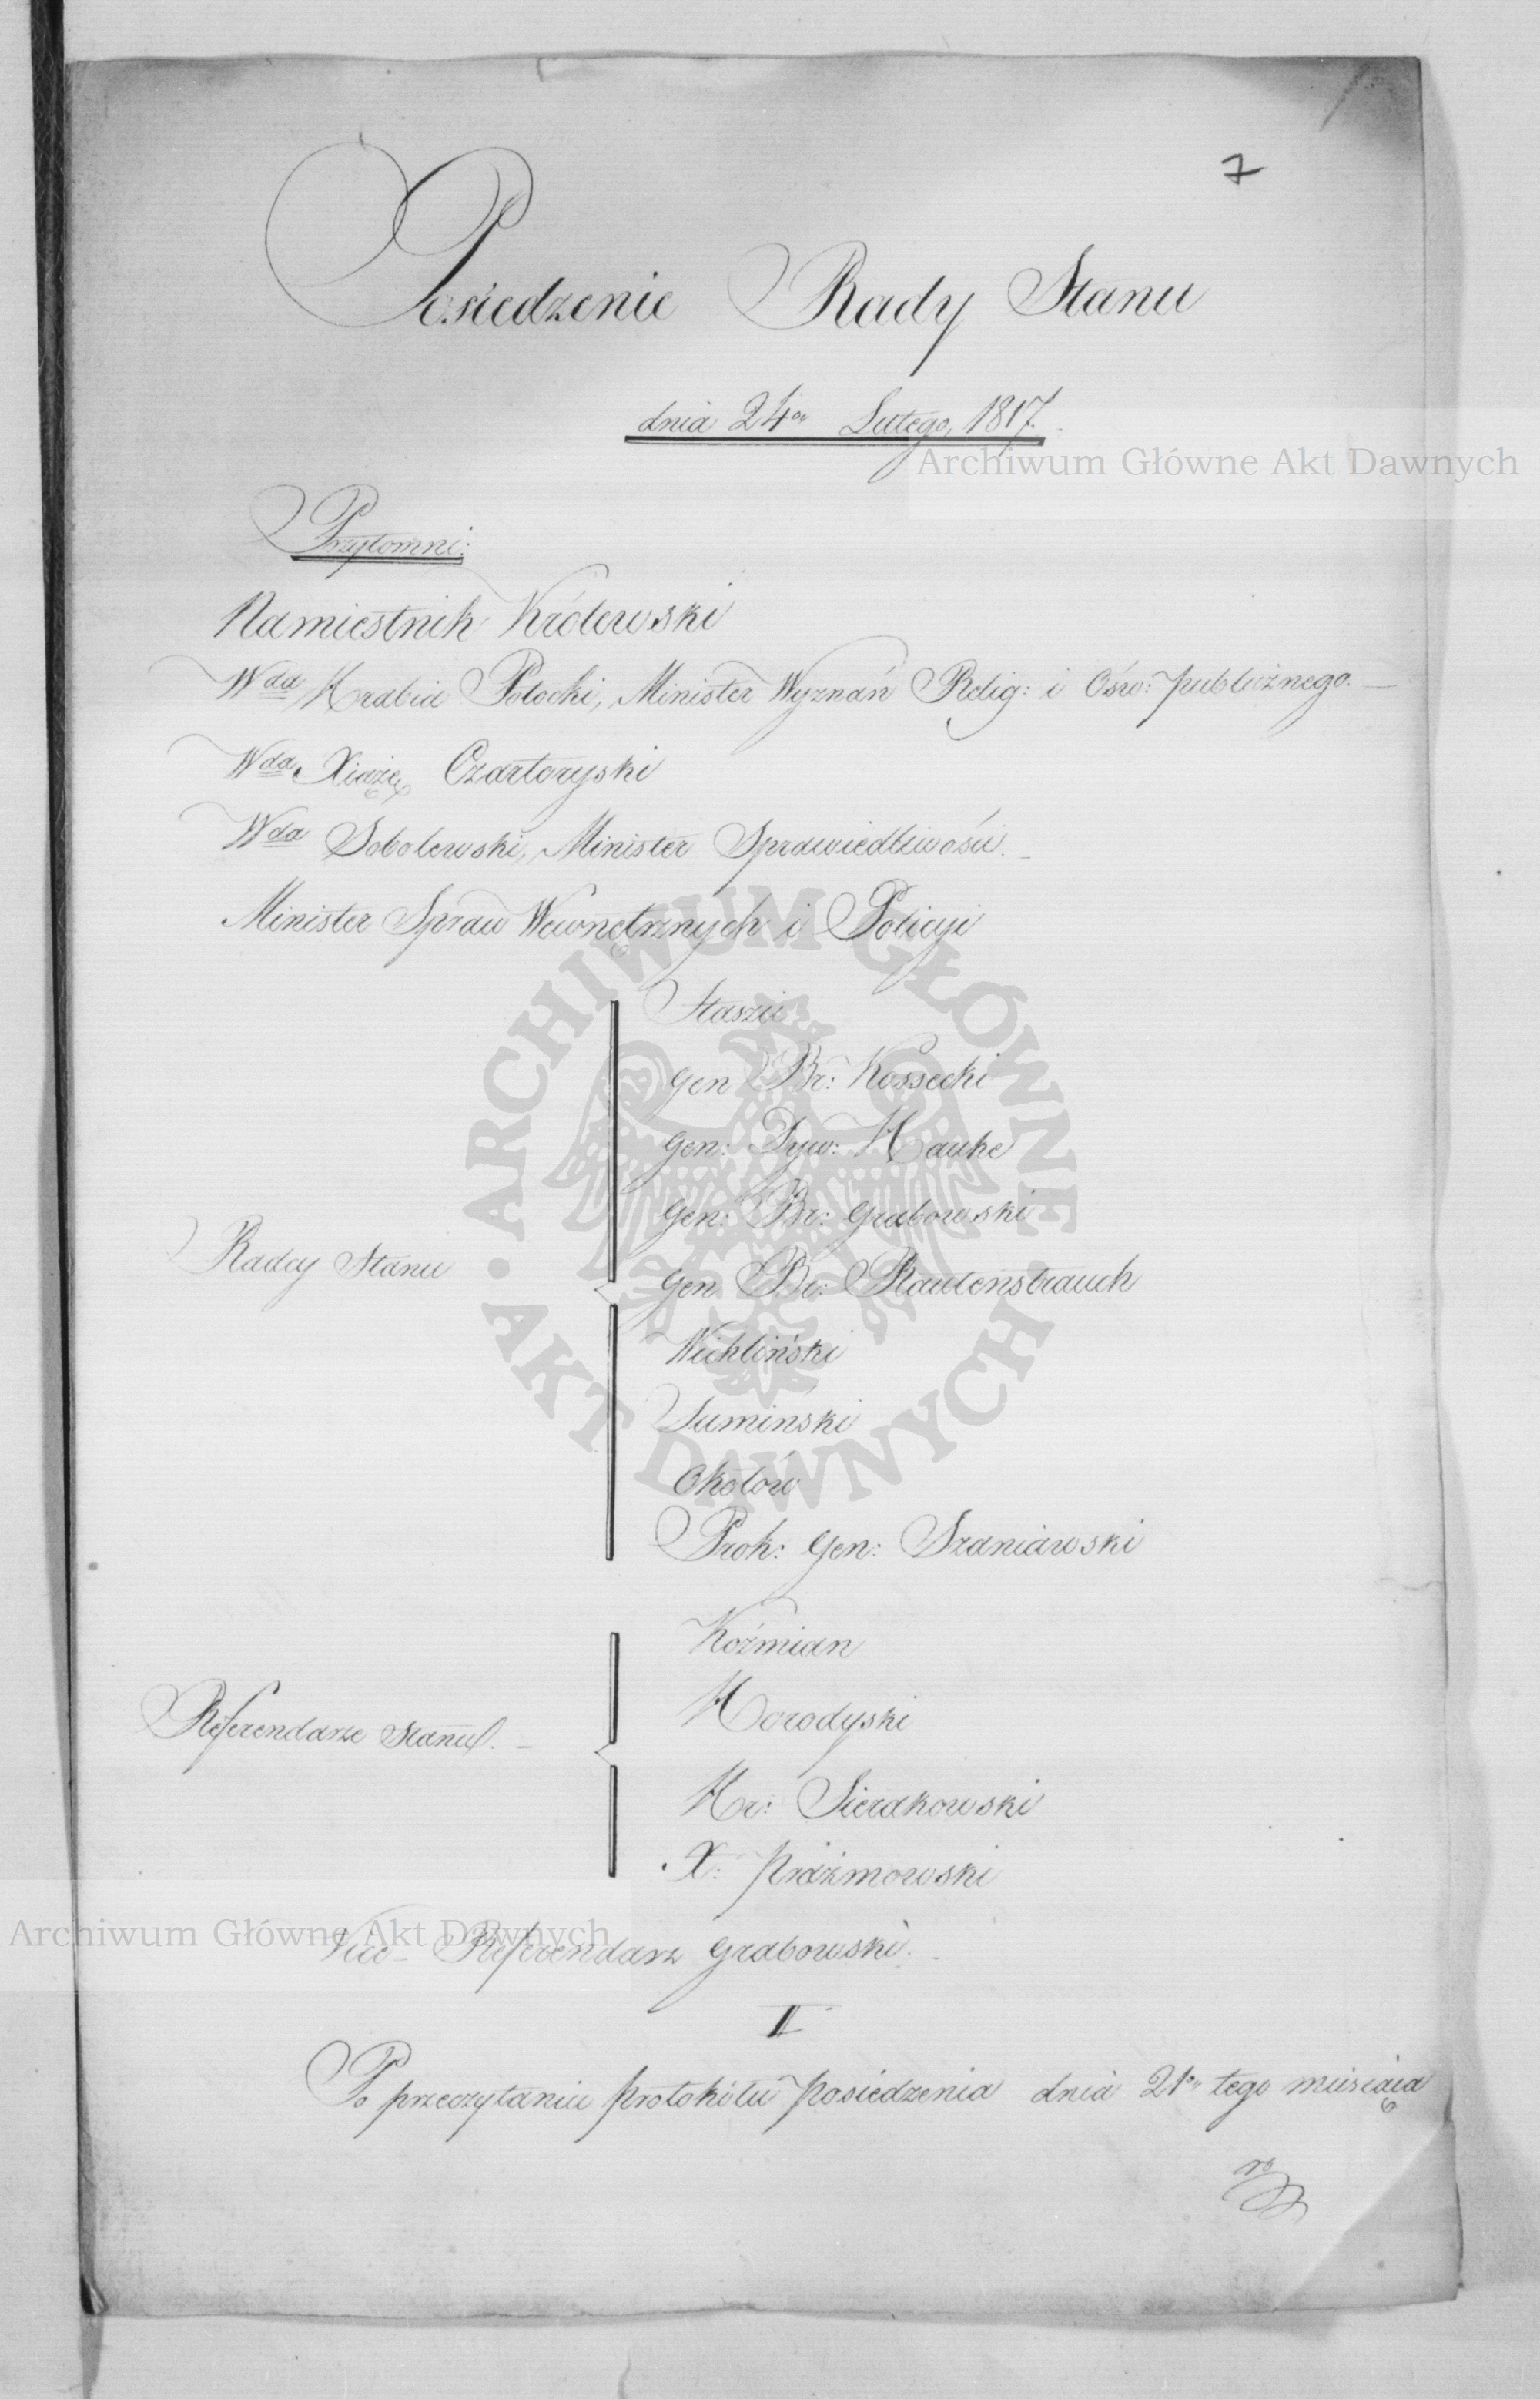 7
Posiedzenie Rady Stanu
dnia 24go Lutego, 1817.
Archiwum Główne Akt Dawnych
Przytomni:
Namiestnik Królewski
Wda Hrabia Potocki, Minister Wyznań Relig: i Ośw: publicznego. —
Wda Xiąże Czartoryski
Wda Sobolewski, Minister Sprawiedliwości. —
Minister Spraw Wewnętrznych i Policyi
ARCHIWUM GŁÓWNE
AKT DAWNYCH
Radcy Stanu
Staszic
Gen Br: Kossecki
Gen: Dyw: Hauke
Gen: Br: Grabowski
Gen Br: Rautenstrauch
Wichliński
Sumiński
Okołów
Prok: Gen: Szaniawski
Referendarze Stanu. —
Koźmian
Horodyski
Hr: Sierakowski
X: Prażmowski
Archiwum Główne Akt Dawnych
Vice-Referendarz Grabowski. —
I
Po przeczytaniu protokółu posiedzenia dnia 21go tego miesiąca